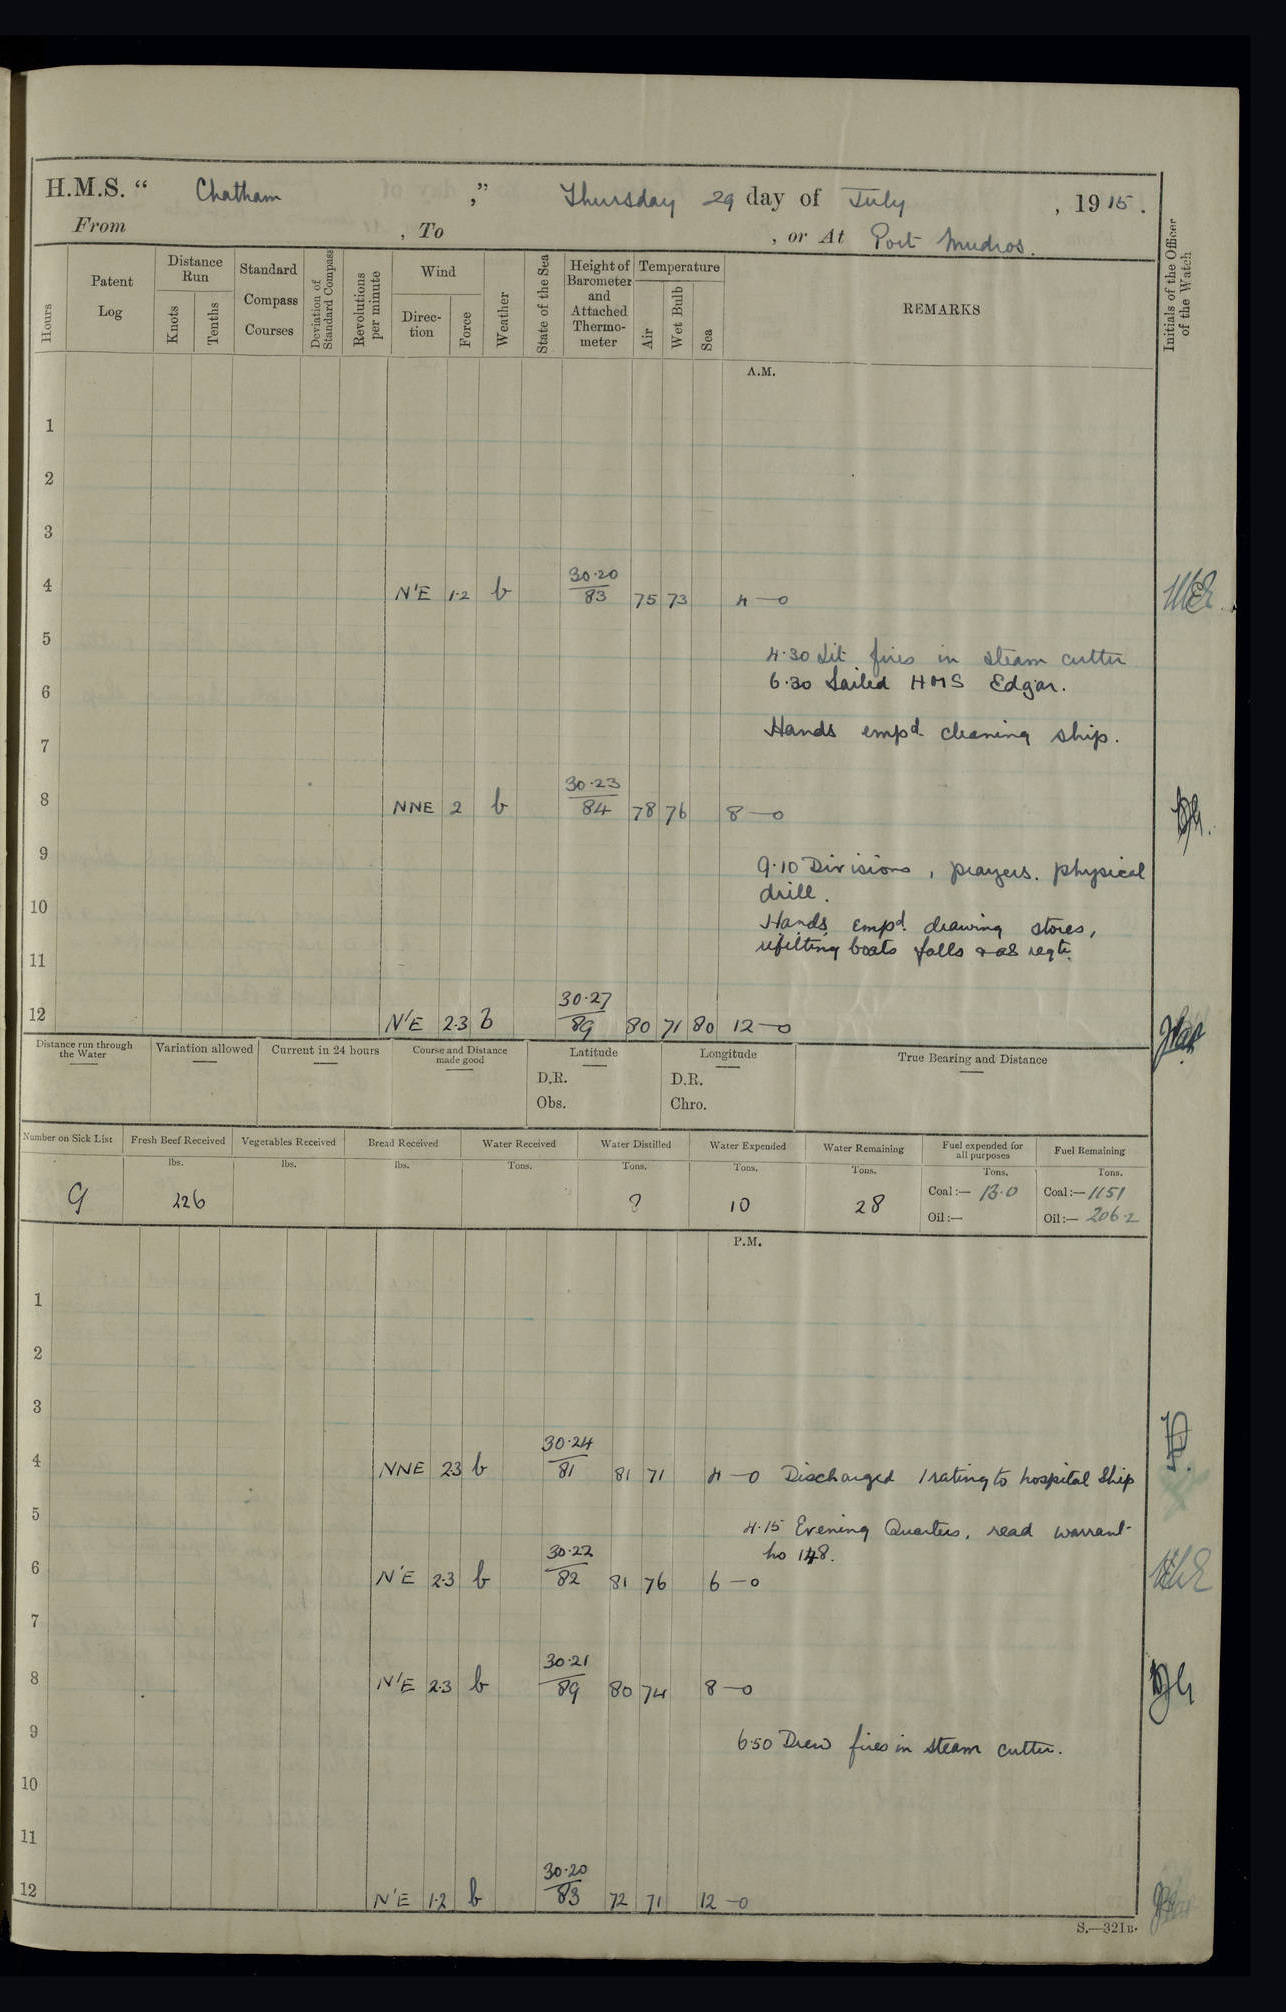 H.M.S. “ Chatham ,” Thursday 29 day of July , 1915.
From , To , or At Port Mudros.
Hours
Patent Log
Distance Run
Knots
Tenths
Standard Compass Courses
Deviation of Standard Compass
Revolutions per minute
Wind
Direction
Force
Weather
State of the Sea
Height of Barometer and Attached Thermometer
Temperature
Air
Wet Bulb
Sea
REMARKS
Initials of the Officer of the Watch
A.M.
1
2
3
4 N'E 1·2 b 30·20/83 75 73 4—0
5 4·30 Lit fires in steam cutter
6 6·30 Sailed HMS Edgar.
7 Hands empd cleaning ship.
8 NNE 2 b 30·23/84 78 76 8—0
9 9·10 Divisions, prayers. physical
drill.
10 Hands empd drawing stores,
11 refitting boats falls & as reqte.
12 N'E 2·3 b 30·27/89 80 71 80 12—0
Distance run through the Water
Variation allowed
Current in 24 hours
Course and Distance made good
Latitude
D.R.
Obs.
Longitude
D.R.
Chro.
True Bearing and Distance
Number on Sick List
Fresh Beef Received
Vegetables Received
Bread Received
Water Received
Water Distilled
Water Expended
Water Remaining
Fuel expended for all purposes
Fuel Remaining
lbs. lbs. lbs. Tons. Tons. Tons. Tons. Tons. Tons.
9 226 ? 10 28 Coal:— 13·0 Coal:— 1151
Oil:— Oil:— 206·2
P.M.
1
2
3
4 NNE 2·3 b 30·24/81 81 71 4—0 Discharged 1 rating to hospital Ship
5 4·15 Evening Quarters, read warrant
no 148.
6 N'E 2·3 b 30·22/82 81 76 6—0
7
8 N'E 2·3 b 30·21/89 80 74 8—0
9 6·50 Drew fires in steam cutter.
10
11
12 N'E 1·2 b 30·20/83 72 71 12—0
S.—321B.